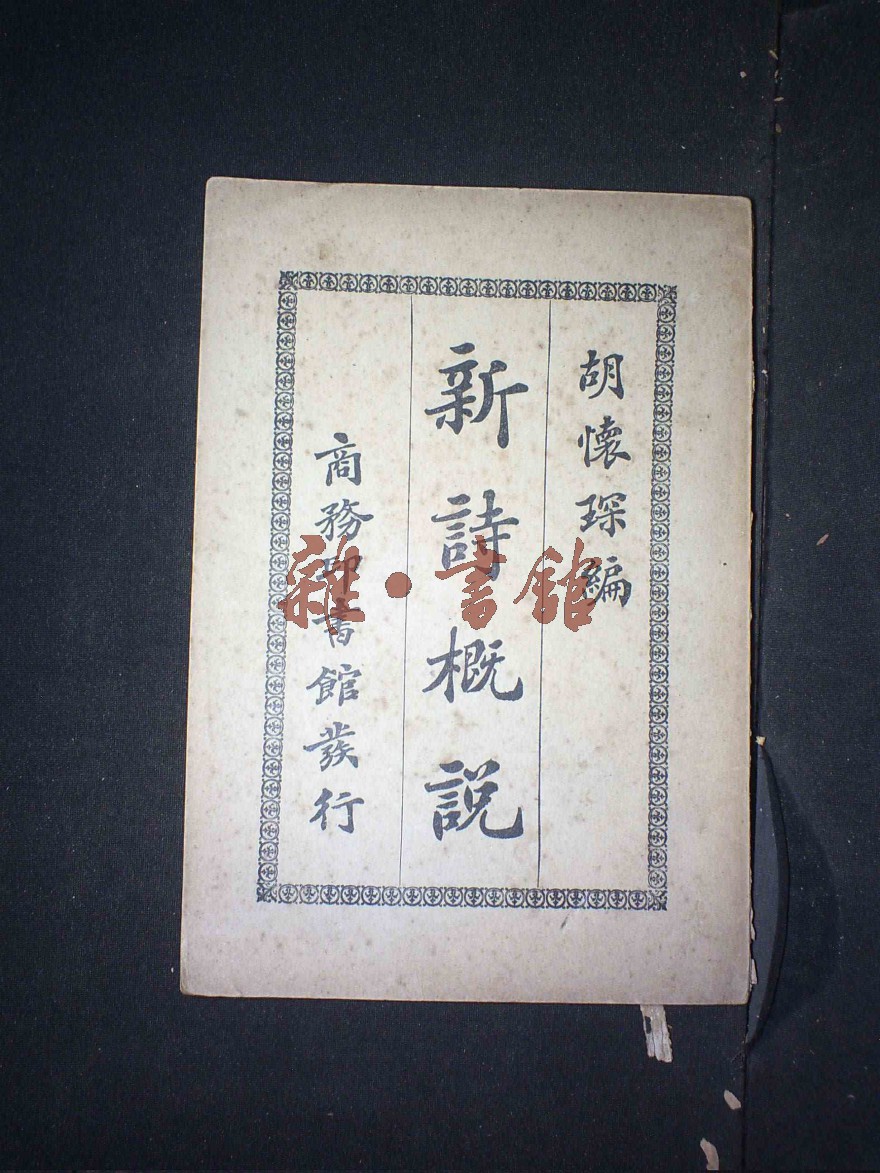 胡懷琛編
新詩概説
商務印書館發行
雜·書館